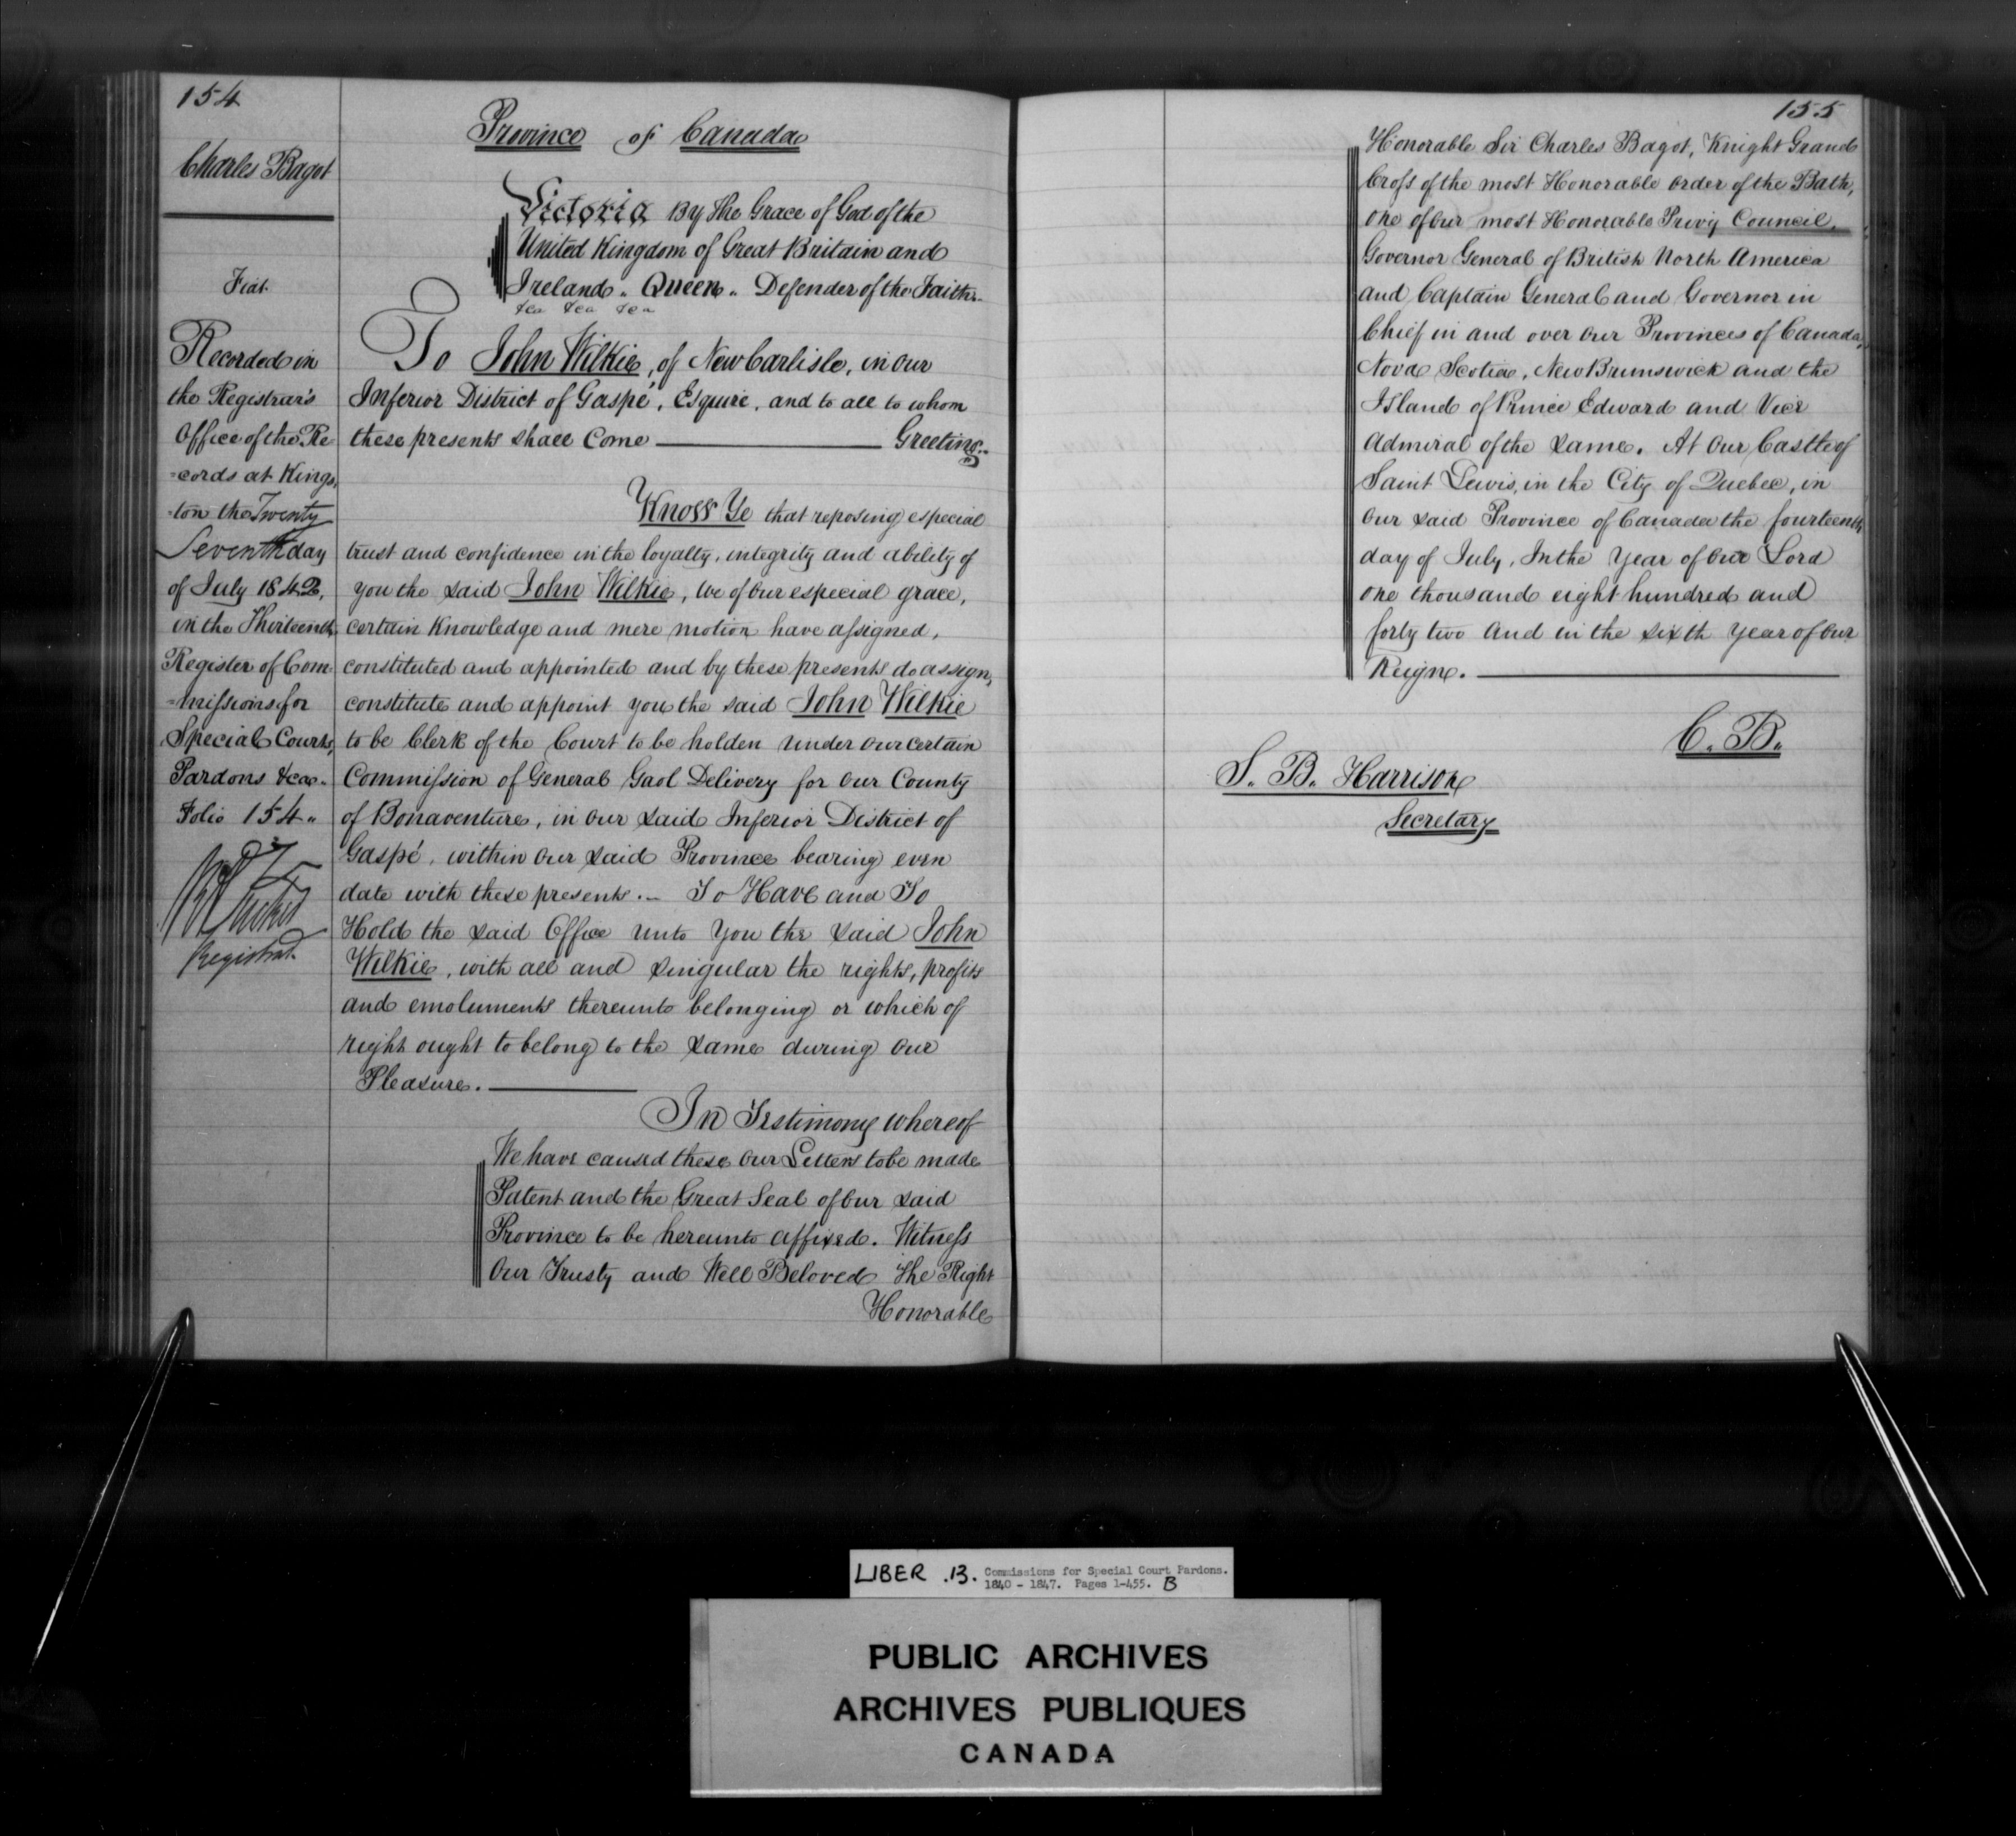 154
Charles Bagot
Fiat.
Recorded in
the Registrar's
Office of the Re
-cords at Kings,
-ton the Twenty
Seventh day
of July 1842,
in the Thirteenth
Register of Com-
-missions for
Special Courts,
Pardons &ca.
Folio 154.
Registrar.
Province of Canada
Victoria By the Grace of God of the
United Kingdom of Great Britain and
Ireland. Queen. Defender of the Faith.
&ca &ca &ca
To John Wilkie, of New Carlisle, in our
Inferior District of Gaspé, Esquire, and to all to whom
these presents shall Come Greeting.
Know Ye that reposing especial
trust and confidence in the loyalty, integrity and ability of
you the said John Wilkie, We of Our especial grace,
certain Knowledge and mere motion have assigned,
constituted and appointed and by these presents do assign,
constitute and appoint you the said John Wilkie
to be Clerk of the Court to be holden under our certain
Commission of General Gaol Delivery for Our County
of Bonaventure, in Our said Inferior District of
Gaspé, within Our said Province bearing even
date with these presents. To Have and To
Hold the said Office unto You the said John
Wilkie, with all and singular the rights, profits
and emoluments thereunto belonging or which of
right ought to belong to the same during Our
Pleasure.
In Testimony whereof
We have caused these Our Letters to be made
Patent and the Great Seal of Our said
Province to be hereunto affixed. Witness
Our Trusty and Well Beloved The Right
Honorable
155
Honorable Sir Charles Bagot, Knight Grand
Cross of the most Honorable Order of the Bath,
One of Our most Honorable Privy Council,
Governor General of British North America
and Captain General and Governor in
Chief in and over Our Provinces of Canada,
Nova Scotia, New Brunswick and the
Island of Prince Edward and Vice
Admiral of the same. At Our Castle of
Saint Lewis, in the City of Quebec, in
Our said Province of Canada the fourteenth
day of July, In the Year of Our Lord
One thousand eight hundred and
forty two And in the sixth Year of Our
Reign.
C. B.
S. B. Harrison
Secretary
LIBER .13. Commissions for Special Court Pardons.
1840 - 1847. Pages 1-455. B
PUBLIC ARCHIVES
ARCHIVES PUBLIQUES
CANADA